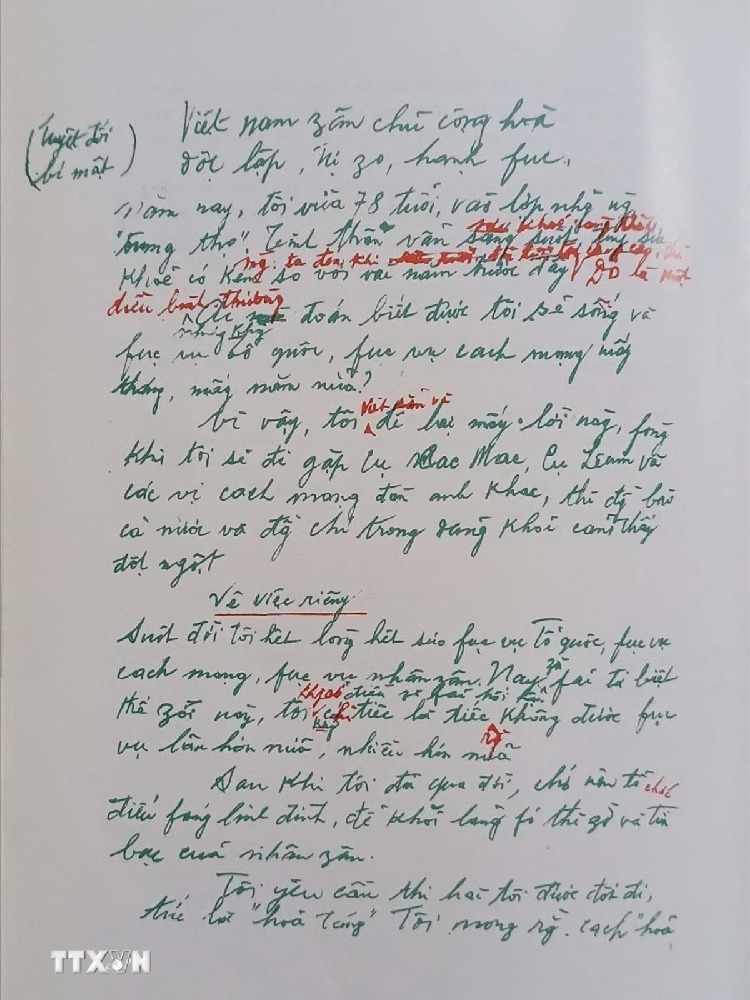 (tuyệt đối
bí mật)
Việt nam zân chủ cộng hoà
độc lập, tự zo, hạnh fúc.
Năm nay, tôi vừa 78 tuổi, vào lớp những ng
"trung thọ". Tinh thần vẫn sáng suốt,
khoẻ có kém so với vài năm trước đây. Đó là một
điều bình thường
đoán biết được tôi sẽ sống và
fục vụ tổ quốc, fục vụ cách mạng mấy
tháng, mấy năm nữa?
Vì vậy, tôi viết sẵn và để lại mấy lời này, fòng
khi tôi sẽ đi gặp cụ Các Mác, Cụ Lênin và
các vị cách mạng đàn anh khác, thì đồng bào
cả nước và đồng chí trong đảng khỏi cảm thấy
đột ngột.
Về việc riêng
Suốt đời tôi hết lòng hết sức fục vụ Tổ quốc, fục vụ
cách mạng, fục vụ nhân zân. Nay zù fải từ biệt
thế zới này, tôi không có điều gì fải hối hận,
chỉ tiếc là tiếc không được fục
vụ lâu hơn nữa, nhiều hơn nữa
Sau khi tôi đã qua đời, chớ nên tổ chức
điếu fúng linh đình, để khỏi lãng fí thì zờ và tiền
bạc của nhân zân.
Tôi yêu cầu thi hài tôi được đốt đi,
tức là "hoả táng". Tôi mong rằng cách "hoả
TTXVN